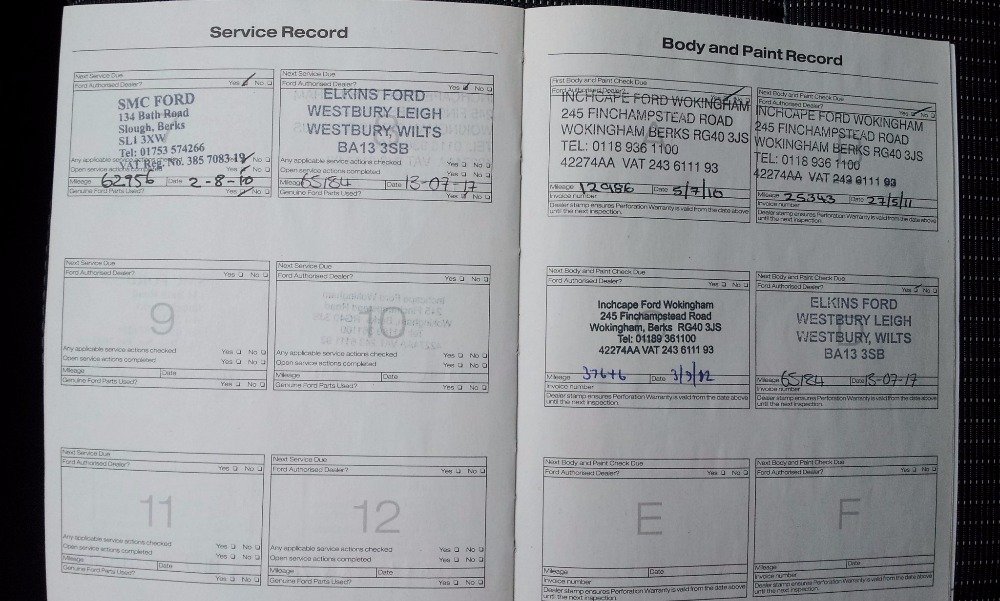 Service Record
Next Service Due
Ford Authorised Dealer? Yes No
SMC FORD
134 Bath Road
Slough, Berks
SL1 3XW
Tel: 01753 574266
VAT Reg. No. 385 7083 19
Any applicable service actions checked Yes No
Open service actions completed Yes No
Mileage 62956 Date 2-8-
Genuine Ford Parts Used? Yes No
Next Service Due
Ford Authorised Dealer? Yes No
ELKINS FORD
WESTBURY LEIGH
WESTBURY, WILTS
BA13 3SB
Any applicable service actions checked Yes No
Open service actions completed Yes No
Mileage 65184 Date 13-07-17
Genuine Ford Parts Used? Yes No
Next Service Due
Ford Authorised Dealer? Yes No
9
Any applicable service actions checked Yes No
Open service actions completed Yes No
Mileage Date
Genuine Ford Parts Used? Yes No
Next Service Due
Ford Authorised Dealer? Yes No
10
Any applicable service actions checked Yes No
Open service actions completed Yes No
Mileage Date
Genuine Ford Parts Used? Yes No
Next Service Due
Ford Authorised Dealer? Yes No
11
Any applicable service actions checked Yes No
Open service actions completed Yes No
Mileage Date
Genuine Ford Parts Used? Yes No
Next Service Due
Ford Authorised Dealer? Yes No
12
Any applicable service actions checked Yes No
Open service actions completed Yes No
Mileage Date
Genuine Ford Parts Used? Yes No
Body and Paint Record
First Body and Paint Check Due
Ford Authorised Dealer?
INCHCAPE FORD WOKINGHAM
245 FINCHAMPSTEAD ROAD
WOKINGHAM BERKS RG40 3JS
TEL: 0118 936 1100
42274AA VAT 243 6111 93
Mileage 12986 Date 5/7/10
Invoice number
Dealer stamp ensures Perforation Warranty is valid from the date above
until the next inspection.
Next Body and Paint Check Due
Ford Authorised Dealer? Yes No
INCHCAPE FORD WOKINGHAM
245 FINCHAMPSTEAD ROAD
WOKINGHAM BERKS RG40 3JS
TEL: 0118 936 1100
42274AA VAT 243 6111 93
Mileage 25343 Date 27/5/11
Invoice number
Dealer stamp ensures Perforation Warranty is valid from the date above
until the next inspection.
Next Body and Paint Check Due
Ford Authorised Dealer? Yes No
Inchcape Ford Wokingham
245 Finchampstead Road
Wokingham, Berks RG40 3JS
Tel: 01189 361100
42274AA VAT 243 6111 93
Mileage 37646 Date 3/9/12
Invoice number
Dealer stamp ensures Perforation Warranty is valid from the date above
until the next inspection.
Next Body and Paint Check Due
Ford Authorised Dealer? Yes No
ELKINS FORD
WESTBURY LEIGH
WESTBURY, WILTS
BA13 3SB
Mileage 65184 Date 13-07-17
Invoice number
Dealer stamp ensures Perforation Warranty is valid from the date above
until the next inspection.
Next Body and Paint Check Due
Ford Authorised Dealer? Yes No
E
Mileage Date
Invoice number
Dealer stamp ensures Perforation Warranty is valid from the date above
until the next inspection.
Next Body and Paint Check Due
Ford Authorised Dealer? Yes No
F
Mileage Date
Invoice number
Dealer stamp ensures Perforation Warranty is valid from the date above
until the next inspection.